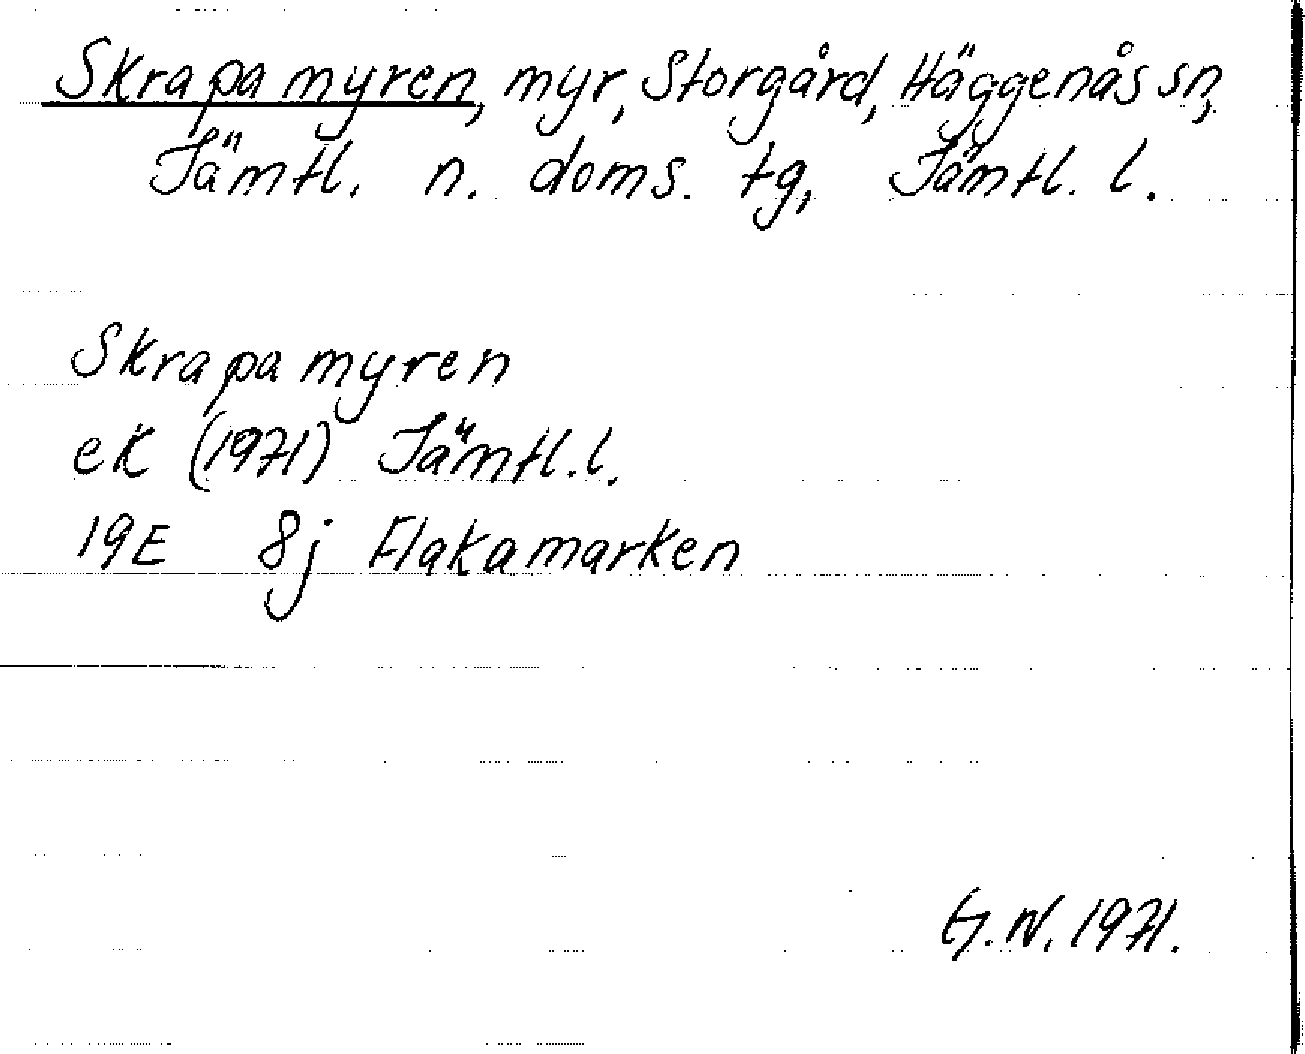 Skrapamyren, myr, Storgård, Häggenås sn,
Jämtl. n. doms. tg, Jämtl. l.
Skrapamyren
ek (1971) Jämtl. l.
19E 8j Flakamarken
G.N. 1971.